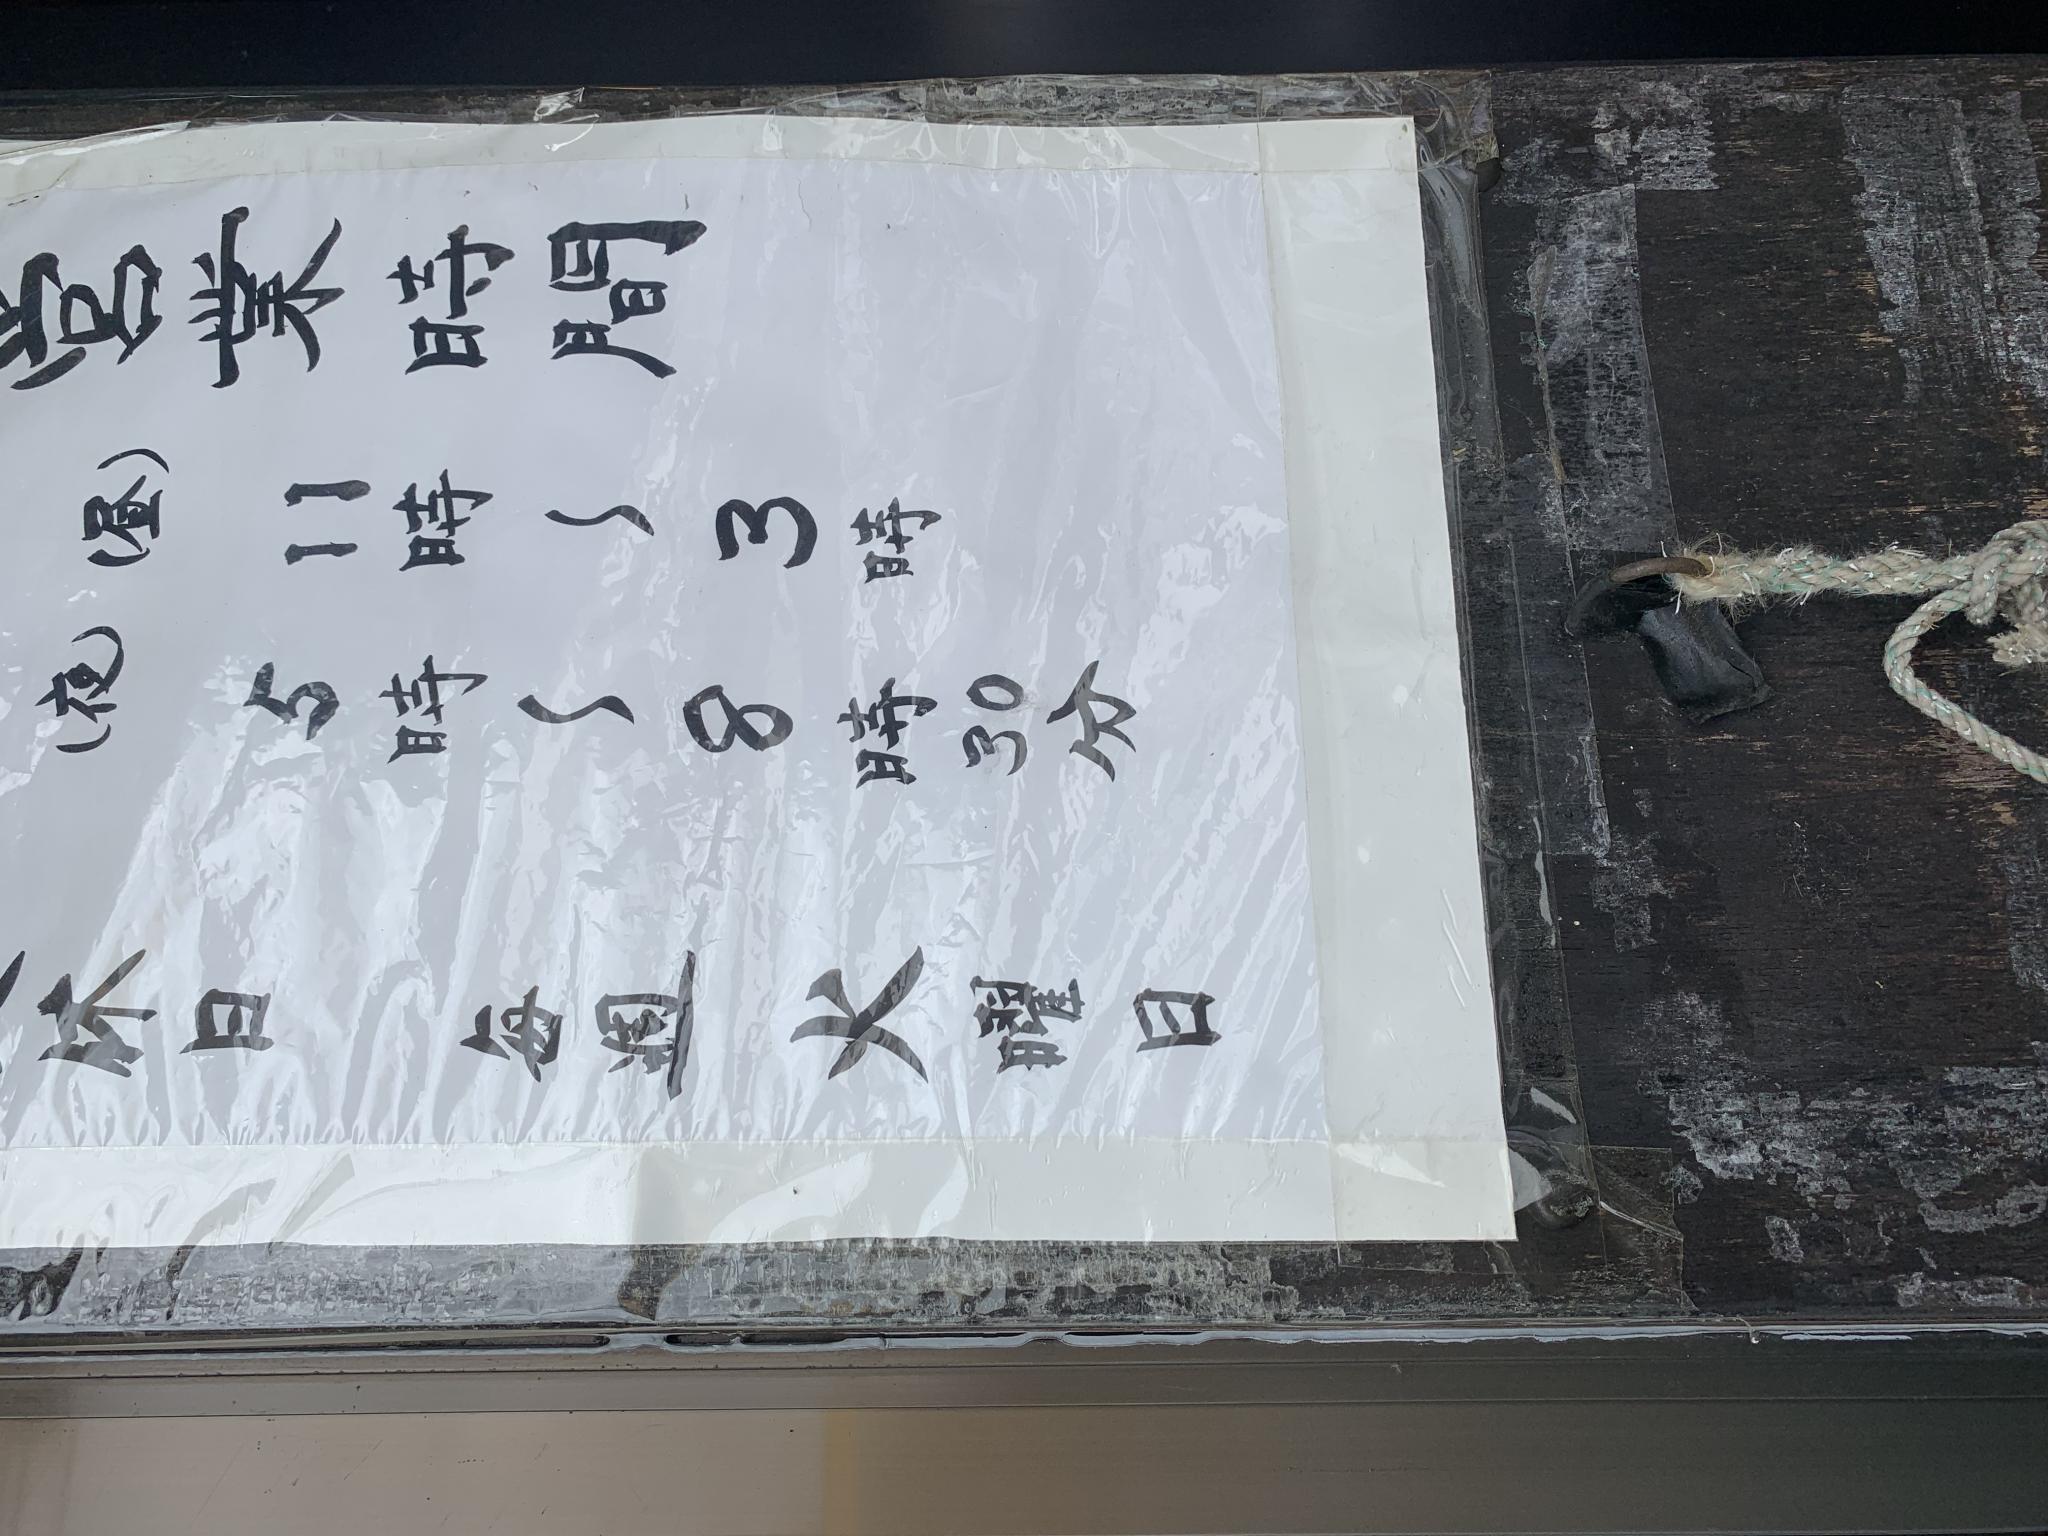 営業時間
(昼) 11時〜3時
(夜) 5時〜8時30分
休日 毎週火曜日